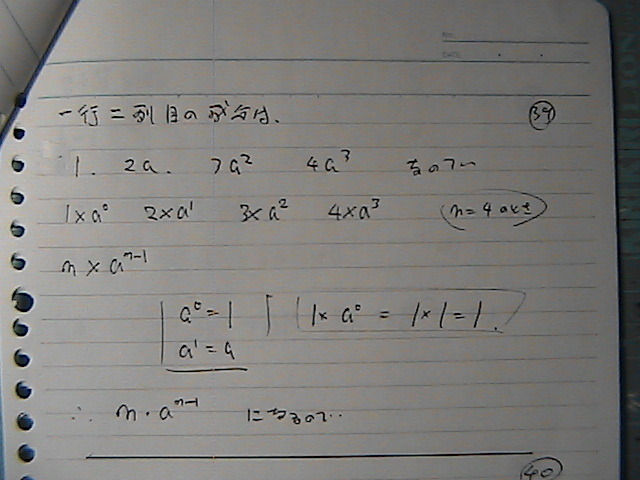 NO.
DATE
一行二列目の成分は、 ㊴
1. 2a. 3a² 4a³ なので
1×a⁰ 2×a¹ 3×a² 4×a³ (n=4のとき)
n×aⁿ⁻¹
a⁰=1 1×a⁰ = 1×1=1.
a¹=a
∴ n・aⁿ⁻¹ になるので‥
㊵